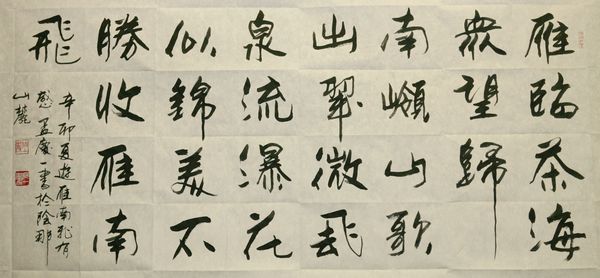 雁臨茶海
眾望歸
南嶺山歌
出翠微飛
泉流瀑花
似錦美不
勝收雁南
飛
辛卯夏遊雁南飛有
感孟慶一書於陰那
山麓